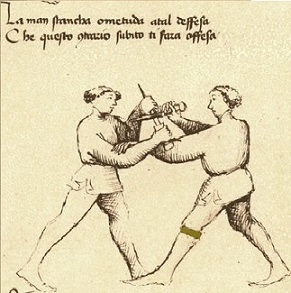 La man stancha ometuda atal deffesa
Che questo 9trario subito ti fara offesa